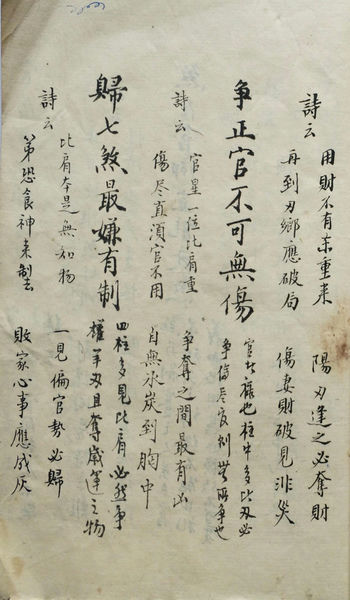 詩云
用財不有重来 陽刃逢之必奪財
再到刃鄉應破局 傷妻財破見非災
爭正官不可無傷
官者祿也柱中多比刃必
爭傷尽反制無所爭也
詩云
官星一位比肩重 爭奪之間最有凶
傷尽直須官不用 自無氷炭到胸中
歸七煞最嫌有制
四柱多見比肩必然爭
權羊刃且奪歲運之物
詩云
比肩本是無知物 一見偏官勢必歸
第恐食神来制去 敗家心事應成灰